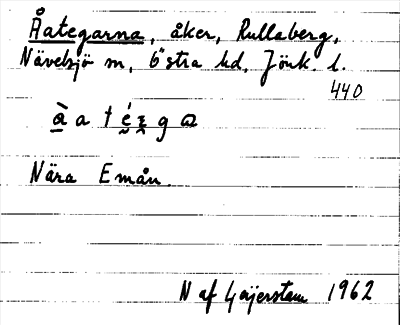 Åategarna, åker, Rullaberg,
Nävelsjö sn, Östra hd, Jönk. l.
440
Nära Emån.
N af Geijerstam 1962